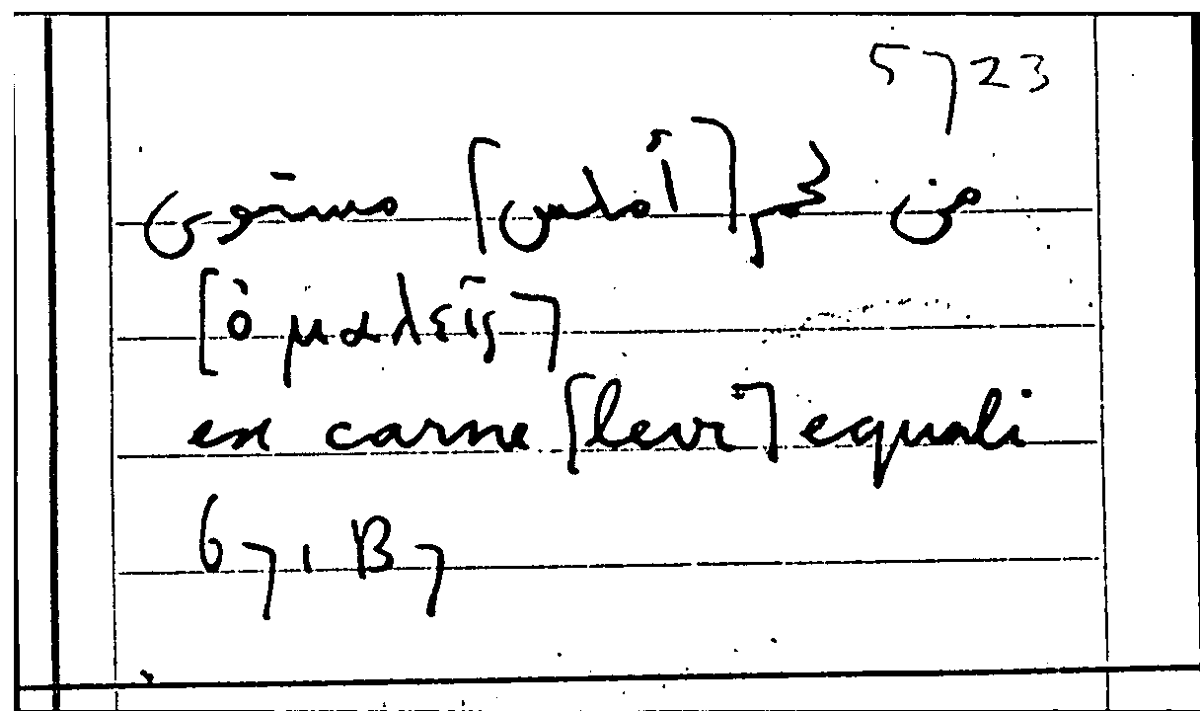 5723
من لحم [أملس] مستوى
[ὁμαλεῖς]
ex carne [levi] equali
671 B7